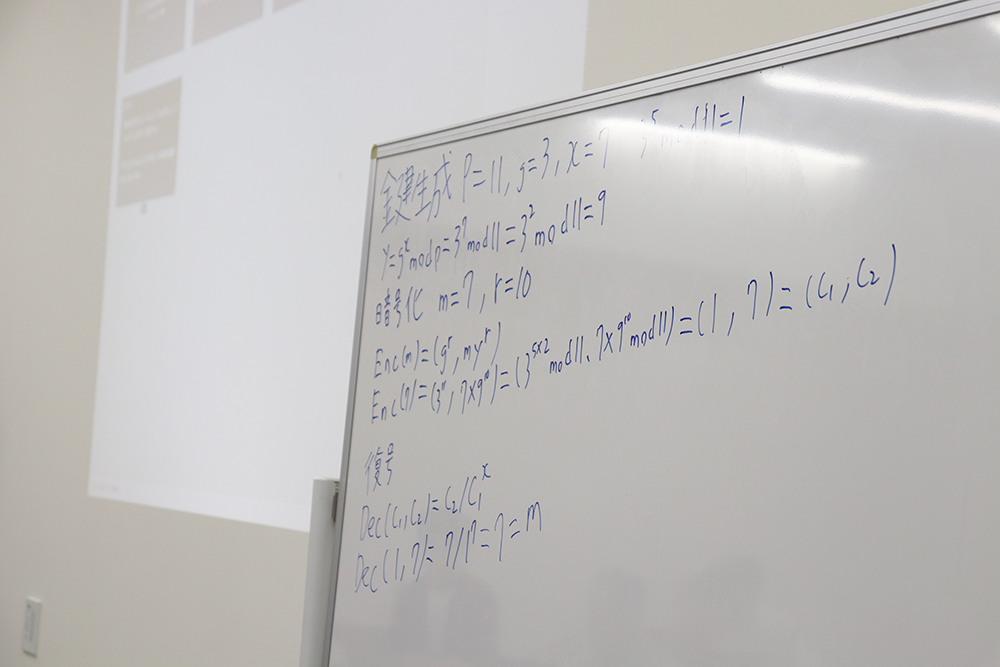 鍵生成 P=11, g=3, x=7 3⁵mod11=1
y=gˣmodp=3⁷mod11=3²mod11=9
暗号化 m=7, r=10
Enc(m)=(gʳ, myʳ)
Enc(7)=(3¹⁰, 7×9¹⁰)=(3⁵ˣ²mod11、7×9¹⁰mod11)=(1, 7)=(C₁, C₂)
復号
Dec(C₁,C₂)=C₂/C₁ˣ
Dec(1,7)=7/1⁷=7=m